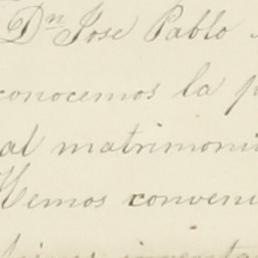 Dn Jose Pablo
conocemos la p
al matrimoni
Hemos conveni